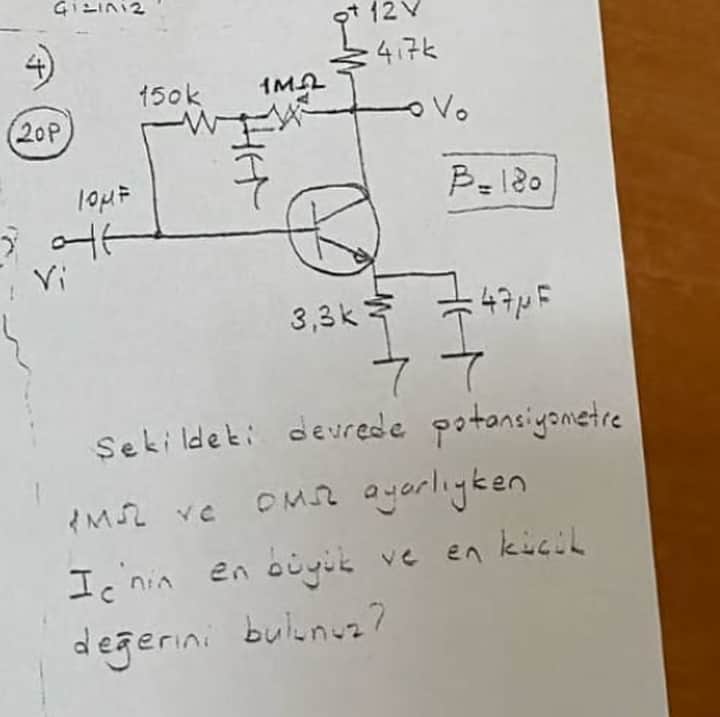 Çiziniz
4)
20P
+ 12V
4,7k
150k
1MΩ
Vo
β = 180
10µF
Vi
3,3k
47µF
Şekildeki devrede potansiyometre
1MΩ ve 0MΩ ayarlıyken
Ic'nin en büyük ve en küçük
değerini bulunuz?